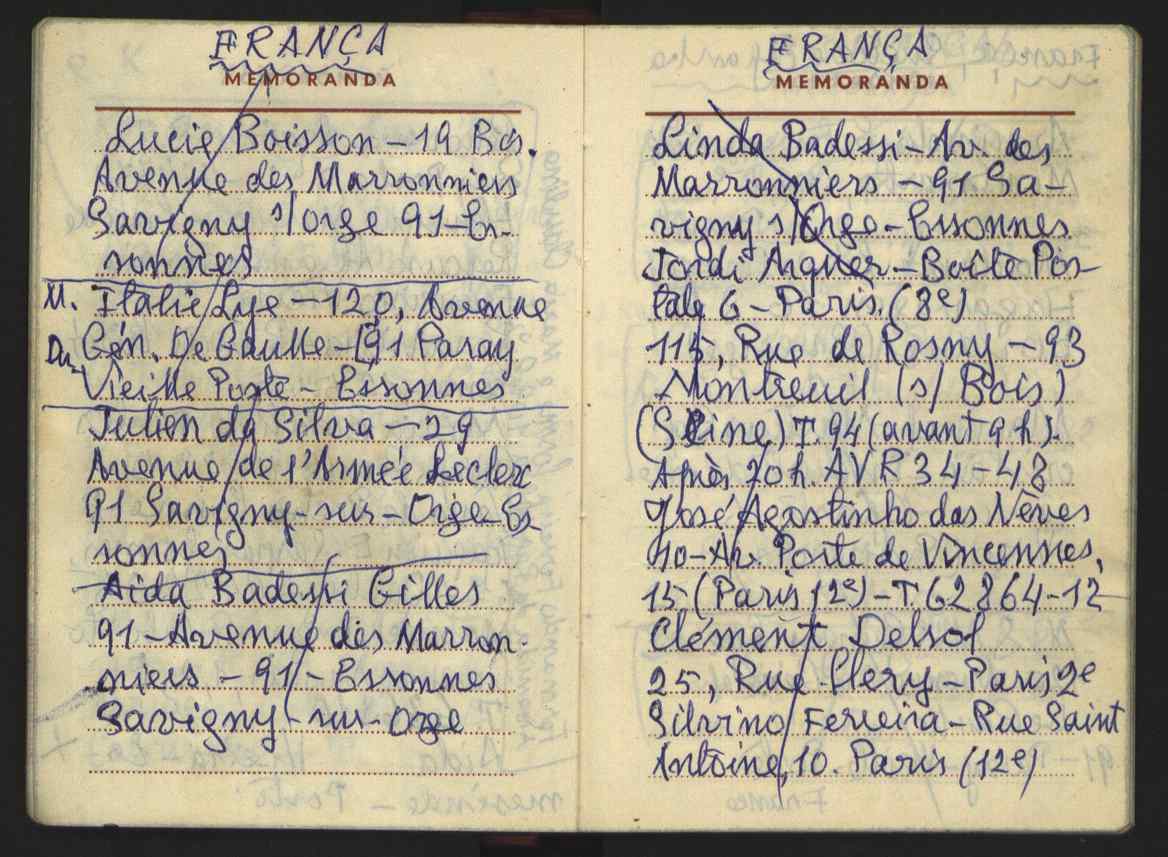 FRANÇA
MEMORANDA
Lucie Boisson – 19 Bis.
Avenue des Marronniers
Savigny s/orge 91–Es-
sonnes
M. Italie Lye – 120, Avenue
Du Gén. De Gaulle – 91 Paray
Vieille Poste – Essonnes
Julien da Silva – 29
Avenue de l'Armée Leclerc
91 Savigny-sur-Orge-Es
sonnes
Aida Badessi Gilles
91 – Avenue des Marron-
niers – 91 – Essonnes
Savigny-sur-orge
FRANÇA
MEMORANDA
Linda Badessi – Av. des
Marronniers – 91 Sa-
vigny s/Orge – Essonnes
Jordi Aiguer – Boîte Pos-
tale 6 – Paris. (8e)
115, Rue de Rosny – 93
Montreuil (s/Bois)
(Seine) T. 94 (avant 9 h).
Après 20 h. AVR 34-48
José Agostinho das Nèves
40-Av. Porte de Vincennes,
15 (Paris 12e) – T 62864-12
Clément Delsol
25, Rue Clery – Paris 2e
Silvino Ferreira – Rue Saint
Antoine, 10. Paris (12e)